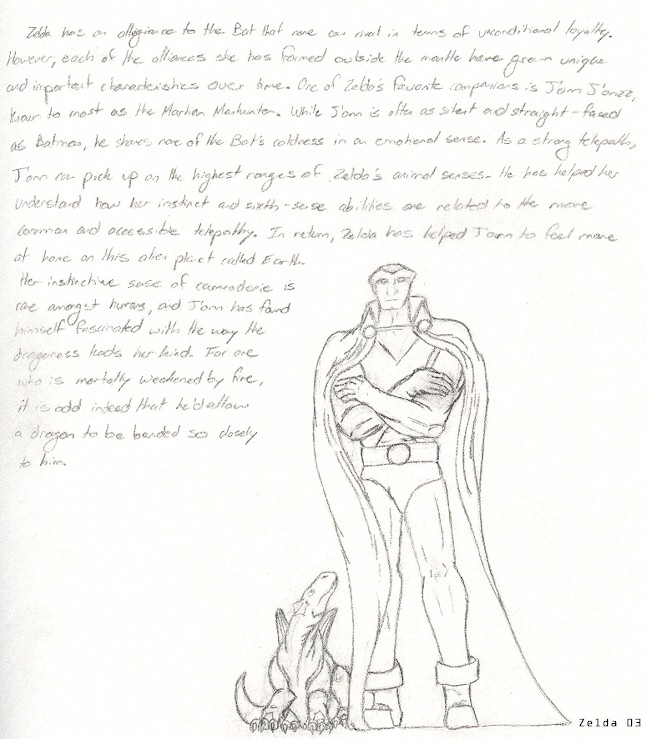 Zelda has an allegiance to the Bat that none can rival in terms of unconditional loyalty.
However, each of the alliances she has formed outside the mantle have grown unique
and important characteristics over time. One of Zelda's favorite companions is J'onn J'onzz,
known to most as the Martian Manhunter. While J'onn is often as silent and straight-faced
as Batman, he shares none of the Bat's coldness in an emotional sense. As a strong telepath,
J'onn can pick up on the highest ranges of Zelda's animal senses. He has helped her
understand how her instinct and sixth-sense abilities are related to the more
common and accessible telepathy. In return, Zelda has helped J'onn to feel more
at home on this alien planet called Earth.
Her instinctive sense of camraderie is
rare amongst humans, and J'onn has found
himself fascinated with the way the
dragoness leads her kind. For one
who is mortally weakened by fire,
it is odd indeed that he'd allow
a dragon to be bonded so closely
to him.
Zelda 03